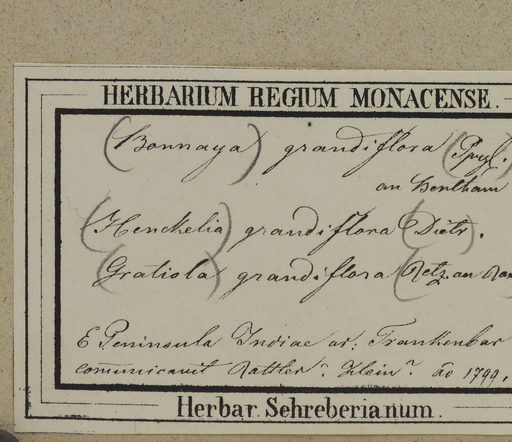 HERBARIUM REGIUM MONACENSE.
(Bonnaya) grandiflora (Spgl.
an Bentham
(Henckelia) grandiflora (Dietr.
(Gratiola) grandiflora (Retz. an Rox
E Peninsula Indiae or: Trankenbar
communicavit Rottler. Klein. ao 1799.
Herbar. Schreberianum.